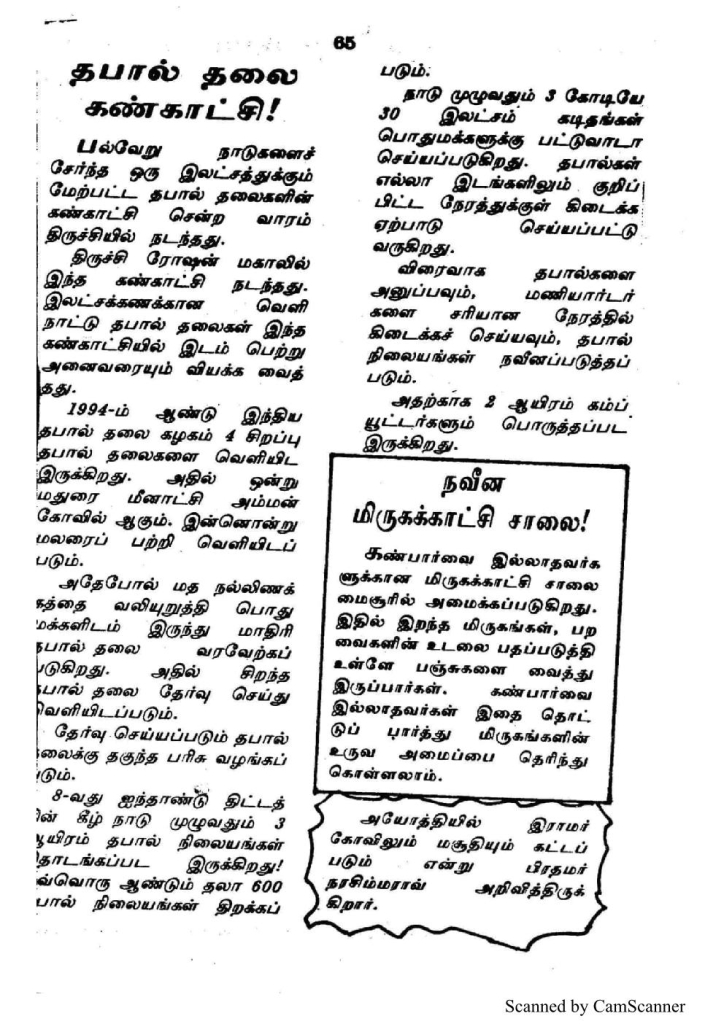 65
தபால் தலை
கண்காட்சி!
பல்வேறு நாடுகளைச்
சேர்ந்த ஒரு இலட்சத்துக்கும்
மேற்பட்ட தபால் தலைகளின்
கண்காட்சி சென்ற வாரம்
திருச்சியில் நடந்தது.
திருச்சி ரோஷன் மகாலில்
இந்த கண்காட்சி நடந்தது.
இலட்சக்கணக்கான வெளி
நாட்டு தபால் தலைகள் இந்த
கண்காட்சியில் இடம் பெற்று
அனைவரையும் வியக்க வைத்
தது.
1994-ம் ஆண்டு இந்திய
தபால் தலை கழகம் 4 சிறப்பு
தபால் தலைகளை வெளியிட
இருக்கிறது. அதில் ஒன்று
மதுரை மீனாட்சி அம்மன்
கோவில் ஆகும். இன்னொன்று
மலரைப் பற்றி வெளியிடப்
படும்.
அதேபோல் மத நல்லிணக்
கத்தை வலியுறுத்தி பொது
மக்களிடம் இருந்து மாதிரி
தபால் தலை வரவேற்கப்
படுகிறது. அதில் சிறந்த
தபால் தலை தேர்வு செய்து
வெளியிடப்படும்.
தேர்வு செய்யப்படும் தபால்
தலைக்கு தகுந்த பரிசு வழங்கப்
படும்.
8-வது ஐந்தாண்டு திட்டத்
தின் கீழ் நாடு முழுவதும் 3
ஆயிரம் தபால் நிலையங்கள்
தொடங்கப்பட இருக்கிறது!
ஒவ்வொரு ஆண்டும் தலா 600
தபால் நிலையங்கள் திறக்கப்
படும்.
நாடு முழுவதும் 3 கோடியே
30 இலட்சம் கடிதங்கள்
பொதுமக்களுக்கு பட்டுவாடா
செய்யப்படுகிறது. தபால்கள்
எல்லா இடங்களிலும் குறிப்
பிட்ட நேரத்துக்குள் கிடைக்க
ஏற்பாடு செய்யப்பட்டு
வருகிறது.
விரைவாக தபால்களை
அனுப்பவும், மணியார்டர்
களை சரியான நேரத்தில்
கிடைக்கச் செய்யவும், தபால்
நிலையங்கள் நவீனப்படுத்தப்
படும்.
அதற்காக 2 ஆயிரம் கம்ப்
யூட்டர்களும் பொருத்தப்பட
இருக்கிறது.
நவீன
மிருகக்காட்சி சாலை!
கண்பார்வை இல்லாதவர்க
ளுக்கான மிருகக்காட்சி சாலை
மைசூரில் அமைக்கப்படுகிறது.
இதில் இறந்த மிருகங்கள், பற
வைகளின் உடலை பதப்படுத்தி
உள்ளே பஞ்சுகளை வைத்து
இருப்பார்கள். கண்பார்வை
இல்லாதவர்கள் இதை தொட்
டுப் பார்த்து மிருகங்களின்
உருவ அமைப்பை தெரிந்து
கொள்ளலாம்.
அயோத்தியில் இராமர்
கோவிலும் மசூதியும் கட்டப்
படும் என்று பிரதமர்
நரசிம்மராவ் அறிவித்திருக்
கிறார்.
Scanned by CamScanner